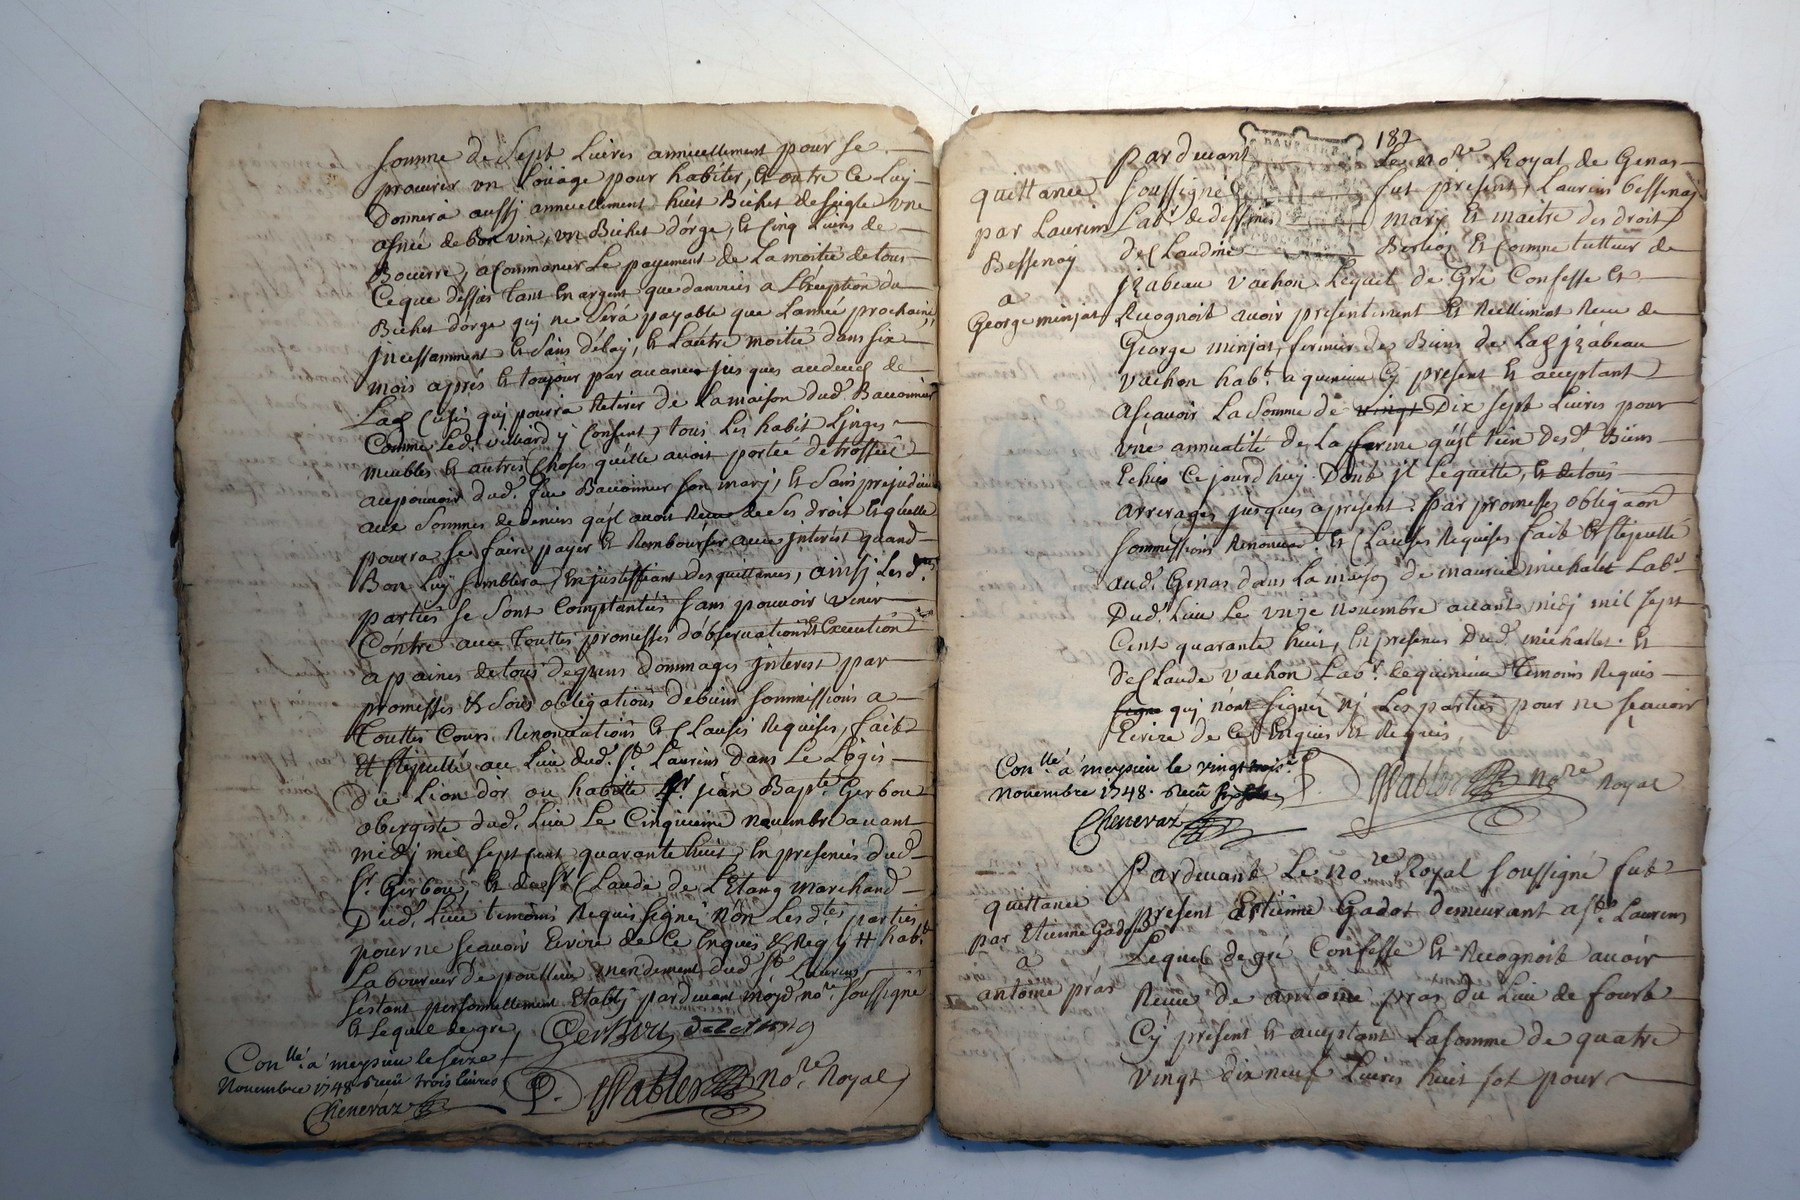 somme de Sept Livres annuellement pour se
procurer un Loüage pour habiter, et outre ce Luy
Donnera aussj annuellement huit Bichet de seigle une
asnée de bon vin, un Bichet d'orge, et Cinq Livres de
Beuerre, a Commancer Le payement de La moitié de tous
Ceque dessus tant en argent que danrrées a L'éxception du
Bichet d'orge quj ne sera payable que L'année prochaine,
jncessamment et sans délaj, et L'autre moitié dans six
mois apprés et toujour par auance jusques au deces de
quj pourra Retirer de La maison dud.
Comme Led. villiard y Consent, tous Les habit Linges
meubles et autres Choses qu'elle auoit portée de trossell
au pouvoir dud. feu son marj, et sans prejudice
aux sommes de deniers qu'jl auoit Receu de ses droit et qu'elle
pourra se faire payer et Rembourser auec jnterest quand
Bon Luy semblera, En justiffiant des quittances, ainsj Les d.
parties se sont Comptantées sans pouvoir venir
Contre auec touttes promesses d'observation et Execution
a paines de tous depens dommages jnterest par
promesses et sous obligations de biens sommissions a
touttes Cours, Renonciations et Clauses Requises, fait
au Lieu dud. St. Laurens dans Le Logis
Du Lion d'or ou habitte sr. jean Bapte. Gerbou
obergiste dud. Lieu Le Cinquieme novembre auant
midj mil sept cent quarante huit, En presences dud.
sr. Gerbou, et du sr. Claude de L'Etang marchand
Dud. Lieu temoins Requis signés non Les dtes parties
pour ne scauoir Ecrire de Ce Enquis et Req. # habt.
Laboureur de mendement dud. st. Laurens
s'estant personnellement Etablj pardevant no.re soussigné
et Lequel de gré,
Gerbou deletang
Con.llé a meysieu le seize
Novembre 1748. Receu trois livres
Cheneraz
no.re Royal
182
DAUPHINÉ
Par devant Le no.re Royal de Genas
quittance soussigné fut present Laurens Bessenaj
par Laurens Labr. de mary et maitre des droit
Bessenaj de Claudine et Comme tutteur de
a jzabeau vachon Lequel de Gré Confesse et
George minjat Recognoit auoir presentement et Reellement Receu de
George minjat, fermier des Biens de Lad. jzabeau
vachon habt. a Cy present et acceptant
Ascauoir La somme de vingt Dix sept Livres pour
une annuatité de La ferme qu'jl tien des d. Biens
Echue Ce jourd'huj. Dont jl Le quitte, et de tous
arrerages jusques apresent. Par promesses obliga͠on
sommissions Renonciaon. et Clauses Requises fait
aud. Genas dans La maison de maurice michallet Labr.
Dud. Lieu Le unze novembre auant midj mil sept
Cent quarante huit, En presences Dud. michallet. et
de Claude vachon Labr. temoins Requis
signé quj n'ont signés nj Les parties pour ne scauoir
Ecrire de ce Enquis et Requis,
Con.llé a meysieu le vingt trois.e
Novembre 1748. Receu
Cheneraz
no.re Royal
Pardevant Le no.re Royal soussigné fut
quittance present Estienne Gadot demeurant a st. Laurens
par Etienne Gadot Lequel de gré Confesse et Recognoit auoir
a
antoine pras Receu de antoine pras du Lieu de fourb
Cy present et acceptant La somme de quatre
vingt dix neuf Livres huit sol pour